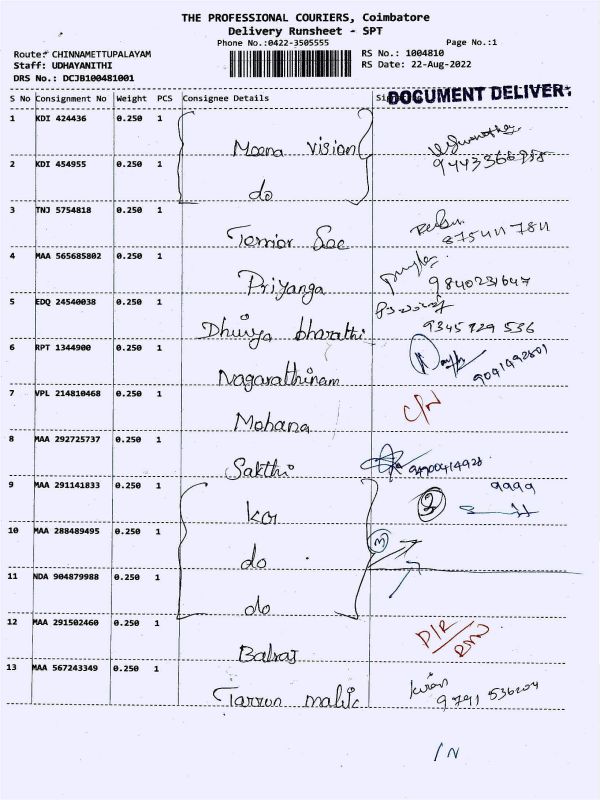 THE PROFESSIONAL COURIERS, Coimbatore
Delivery Runsheet - SPT
Phone No.:0422-3505555
Page No.:1
Route: CHINNAMETTUPALAYAM
RS No.: 1004810
Staff: UDHAYANITHI
RS Date: 22-Aug-2022
DRS No.: DCJB100481001
DOCUMENT DELIVER
S No Consignment No Weight PCS Consignee Details
1 KDI 424436 0.250 1 Meena vision
2 KDI 454955 0.250 1 do
3 TNJ 5754818 0.250 1
4 MAA 565685802 0.250 1 Priyanga 9840231647
5 EDQ 24540038 0.250 1 Dhivya bharathi 9345929536
6 RPT 1344900 0.250 1 Nagarathinam
7 VPL 214810468 0.250 1 Mohana
8 MAA 292725737 0.250 1 Sakthi
9 MAA 291141833 0.250 1 9999
10 MAA 288489495 0.250 1 do
11 NDA 904879988 0.250 1 do
12 MAA 291502460 0.250 1 Balraj
13 MAA 567243349 0.250 1